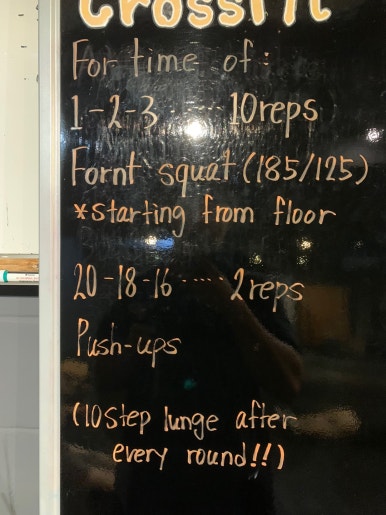 CrossFit
For time of :
1-2-3 ···· 10reps
Fornt squat (185/125)
*starting from floor
20-18-16 ····· 2reps
Push-ups
(10step lunge after
every round!!)